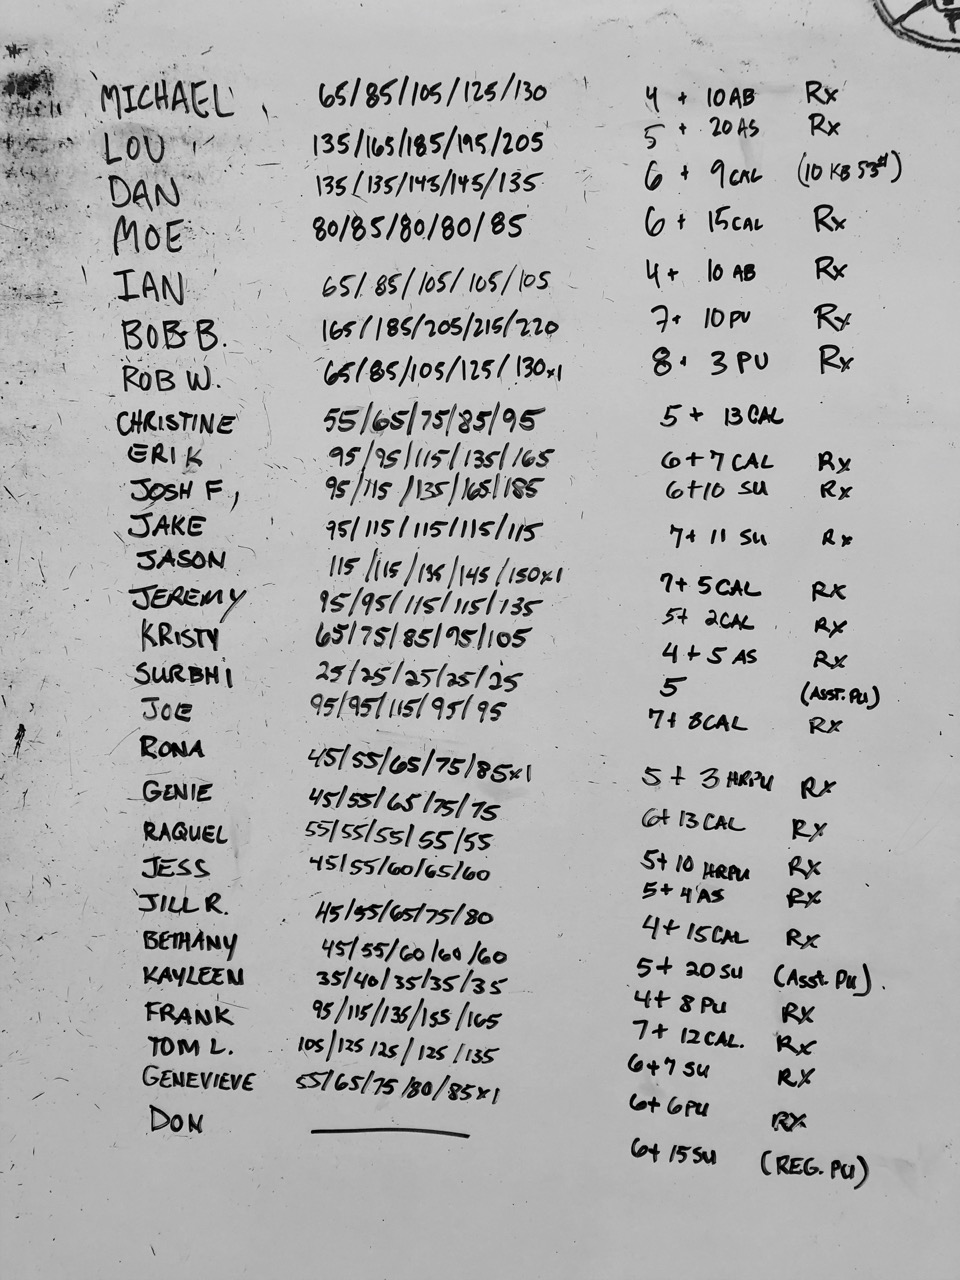 MICHAEL 65/85/105/125/130 4 + 10 AB Rx
LOU 135/165/185/195/205 5 + 20 AS Rx
DAN 135/135/145/145/135 6 + 9 CAL (10 KB 53#)
MOE 80/85/80/80/85 6 + 15 CAL Rx
IAN 65/85/105/105/105 4 + 10 AB Rx
BOB B. 165/185/205/215/220 7 + 10 PU Rx
ROB W. 65/85/105/125/130x1 8 + 3 PU Rx
CHRISTINE 55/65/75/85/95 5 + 13 CAL
ERIK 95/95/115/135/165 6 + 7 CAL Rx
JOSH F, 95/115/135/165/185 6+10 SU Rx
JAKE 95/115/115/115/115 7+ 11 SU Rx
JASON 115/115/135/145/150x1 7+ 5 CAL Rx
JEREMY 95/95/115/115/135 5+ 2 CAL Rx
KRISTY 65/75/85/95/105 4 + 5 AS Rx
SURBHI 25/25/25/25/25 5 (ASST. PU)
JOE 95/95/115/95/95 7+ 8 CAL Rx
RONA 45/55/65/75/85x1 5 + 3 HRPU Rx
GENIE 45/55/65/75/75 6+ 13 CAL Rx
RAQUEL 55/55/55/55/55 5+ 10 HRPU Rx
JESS 45/55/60/65/60 5+ 4 AS Rx
JILL R. 45/55/65/75/80 4+ 15 CAL Rx
BETHANY 45/55/60/60/60 5+ 20 SU (ASST. PU).
KAYLEEN 35/40/35/35/35 4+ 8 PU Rx
FRANK 95/115/135/155/165 7+ 12 CAL. Rx
TOM L. 105/125 125/125/135 6+7 SU Rx
GENEVIEVE 55/65/75/80/85x1 6+ 6 PU Rx
DON 6+ 15 SU (REG. PU)